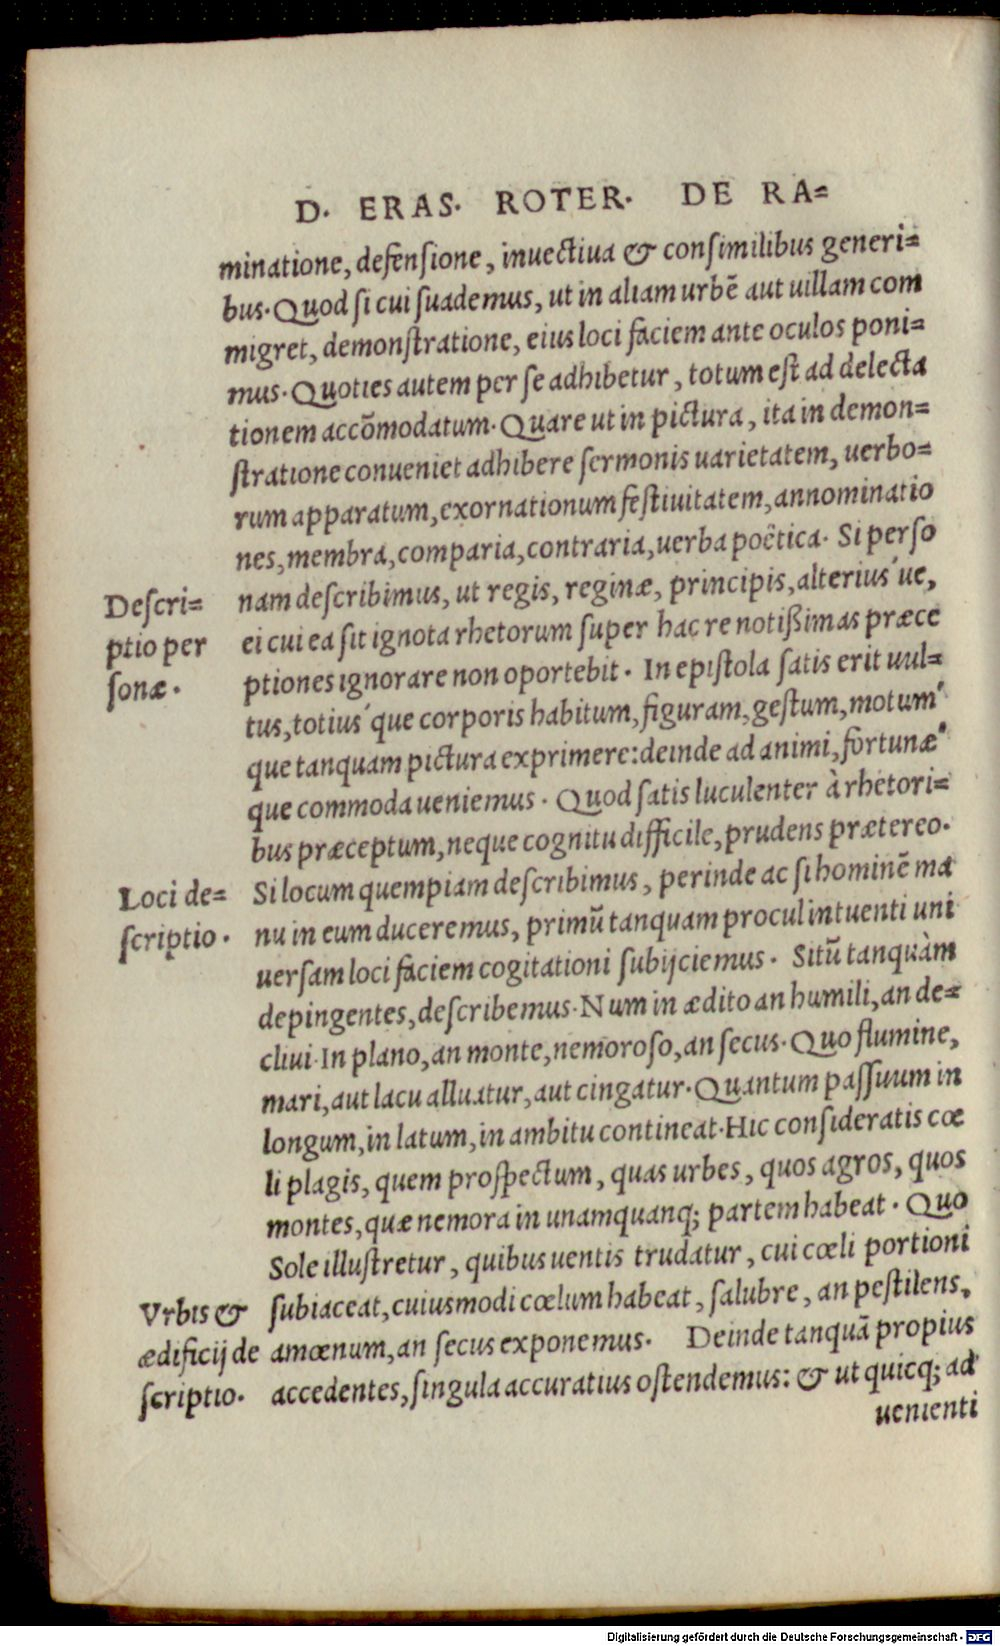 D. ERAS. ROTER. DE RA=
minatione, defensione, inuectiua & consimilibus generi=
bus. Quod si cui suademus, ut in aliam urbē aut uillam com
migret, demonstratione, eius loci faciem ante oculos poni=
mus. Quoties autem per se adhibetur, totum est ad delecta
tionem accōmodatum. Quare ut in pictura, ita in demon=
stratione conueniet adhibere sermonis uarietatem, uerbo=
rum apparatum, exornationum festiuitatem, annominatio
nes, membra, comparia, contraria, uerba poëtica. Si perso
Descri=
ptio per
sonæ.
nam describimus, ut regis, reginæ, principis, alterius´ue,
ei cui ea sit ignota rhetorum super hac re notißimas præce
ptiones ignorare non oportebit. In epistola satis erit uul=
tus, totius´que corporis habitum, figuram, gestum, motum´
que tanquam pictura exprimere: deinde ad animi, fortunæ´
que commoda ueniemus. Quod satis luculenter à rhetori=
bus præceptum, neque cognitu difficile, prudens prætereo.
Loci de=
scriptio.
Si locum quempiam describimus, perinde ac si hominē ma
nu in eum duceremus, primū tanquam procul intuenti uni
uersam loci faciem cogitationi subijciemus. Sitū tanquàm
depingentes, describemus. Num in ædito an humili, an de=
cliui. In plano, an monte, nemoroso, an secus. Quo flumine,
mari, aut lacu alluatur, aut cingatur. Quantum passuum in
longum, in latum, in ambitu contineat. Hic consideratis cœ
li plagis, quem prospectum, quas urbes, quos agros, quos
montes, quæ nemora in unamquanq; partem habeat. Quo
Sole illustretur, quibus uentis trudatur, cui cœli portioni
Vrbis &
ædificij de
scriptio.
subiaceat, cuiusmodi cœlum habeat, salubre, an pestilens,
amœnum, an secus exponemus. Deinde tanquā propius
accedentes, singula accuratius ostendemus: & ut quicq; ad
uenienti
Digitalisierung gefördert durch die Deutsche Forschungsgemeinschaft - DFG